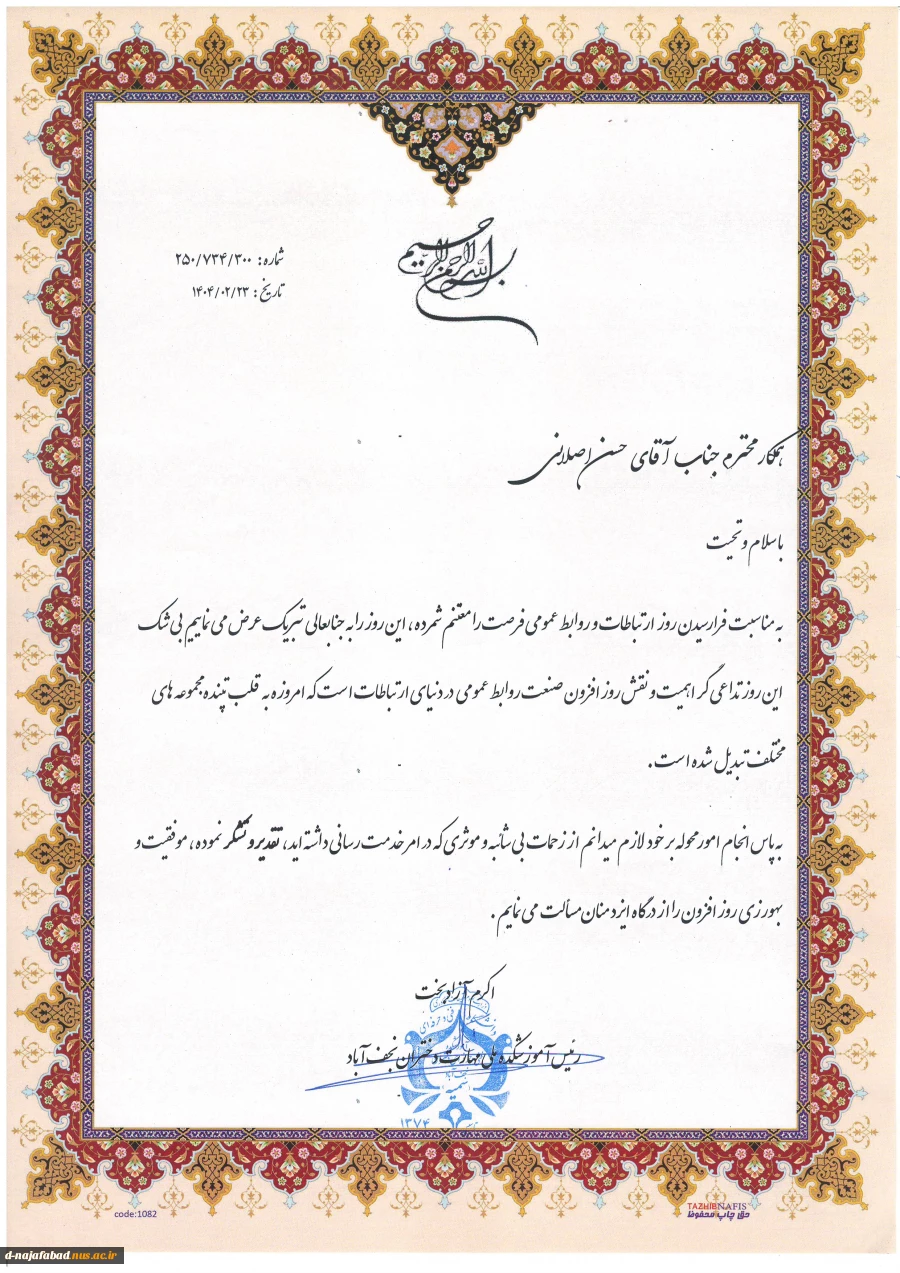 بسم الله الرحمن الرحیم
شماره: ۲۵۰/۷۳۴/۳۰۰
تاریخ: ۱۴۰۴/۰۲/۲۳
همکار محترم جناب آقای حسن اصلانی
باسلام و تحیت
به مناسبت فرارسیدن روز ارتباطات و روابط عمومی فرصت را مغتنم شمرده، این روز را به جنابعالی تبریک عرض می نماییم بی شک
این روز تداعی گر اهمیت و نقش روز افزون صنعت روابط عمومی در دنیای ارتباطات است که امروزه به قلب تپنده مجموعه های
مختلف تبدیل شده است.
به پاس انجام امور محوله بر خود لازم میدانم از زحمات بی شائبه و موثری که در امر خدمت رسانی داشته اید، تقدیر و تشکر نموده، موفقیت و
بهورزی روز افزون را از درگاه ایزد منان مسألت می نمایم.
اکرم آزادبخت
رئیس آموزشکده ملی مهارت دختران نجف آباد
۱۳۷۴
code:1082
TAZHIBNAFIS
حق چاپ محفوظ
d-najafabad.nus.ac.ir